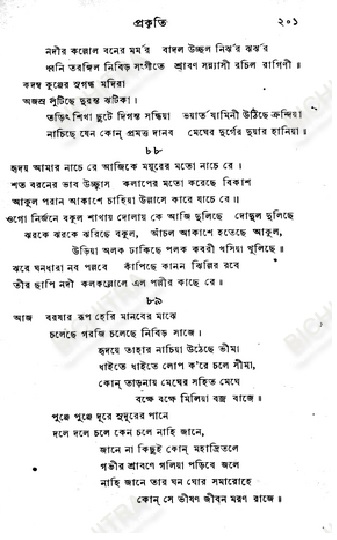 প্রকৃতি ২০১
নদীর কল্লোল বনের মর্মর বাদল উচ্ছল নির্ঝর ঝর্ঝর
ধ্বনি তরঙ্গিল নিবিড় সংগীতে শ্রাবণ সন্ন্যাসী রচিল রাগিণী ॥
কদম্ব কুঞ্জের সুগন্ধ মদিরা
অজস্র লুটিছে দুরন্ত ঝটিকা।
তড়িৎ শিখা ছুটে দিগন্ত সন্ধিয়া ভয়ার্ত যামিনী উঠিছে ক্রন্দিয়া
নাচিছে যেন কোন্ প্রমত্ত দানব মেঘের দুর্গের দুয়ার হানিয়া ॥
৮৮
হৃদয় আমার নাচে রে আজিকে ময়ূরের মতো নাচে রে।
শত বরনের ভাব উচ্ছ্বাস কলাপের মতো করেছে বিকাশ
আকুল পরান আকাশে চাহিয়া উল্লাসে কারে যাচে রে॥
ওগো নির্জনে বকুল শাখায় দোলায় কে আজি দুলিছে দোদুল দুলিছে
ঝরকে ঝরকে ঝরিছে বকুল, আঁচল আকাশে হতেছে আকুল,
উড়িয়া অলক ঢাকিছে পলক কবরী খসিয়া খুলিছে ॥
ঝরে ঘনধারা নব পল্লবে কাঁপিছে কানন ঝিল্লির রবে
তীর ছাপি নদী কলকল্লোলে এল পল্লীর কাছে রে ॥
৮৯
আজ বরষার রূপ হেরি মানবের মাঝে
চলেছে গরজি চলেছে নিবিড় সাজে।
হৃদয়ে তাহার নাচিয়া উঠেছে ভীমা
ধাইতে ধাইতে লোপ ক'রে চলে সীমা,
কোন্ তাড়নায় মেঘের সহিত মেঘে
বক্ষে বক্ষে মিলিয়া বজ্র বাজে ॥
পুঞ্জে পুঞ্জে দূরে সুদূরের পানে
দলে দলে চলে কেন চলে নাহি জানে,
জানে না কিছুই কোন্ মহাদ্রিতলে
গভীর শ্রাবণে গলিয়া পড়িবে জলে
নাহি জানে তার ঘন ঘোর সমারোহে
কোন্ সে ভীষণ জীবন মরণ রাজে ॥